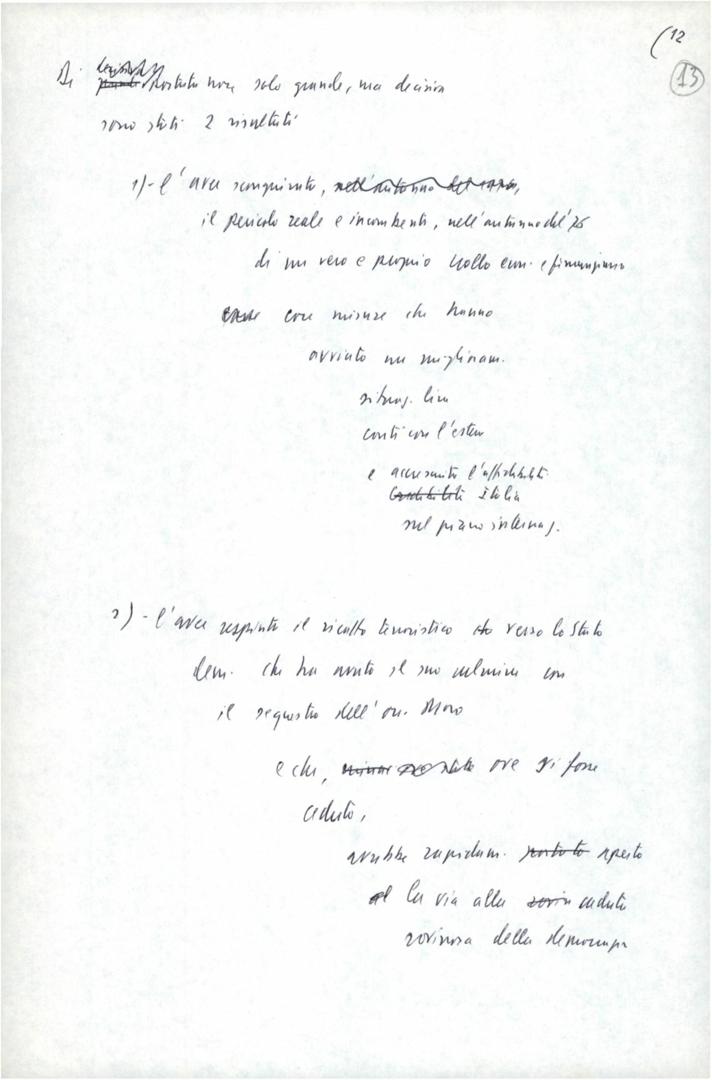 (12
13
Di portata non solo grande, ma decisiva
sono stati 2 risultati
1)- l'aver scongiurato, nell'autunno del 1976,
il pericolo reale e incombente, nell'autunno del '76
di un vero e proprio crollo econ. e finanziario
con misure che hanno
avviato un miglioram.
situaz. 
conti con l'estero
e accresciuto l'affidabilità
credibilità Italia
sul piano internaz.
2)- l'aver respinto il ricatto terroristico verso lo Stato
dem. che ha avuto il suo culmine con
il sequestro dell'on. Moro
e che, ove si fosse
ceduto,
avrebbe rapidam. portato aperto
la via alla caduta
rovinosa della democrazia